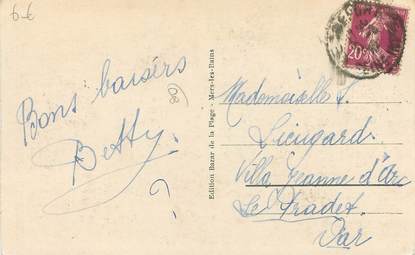 6-6
Bons baisers
Betty.
80
Edition Bazar de la Plage - Mers-les-Bains
20c
Mademoiselle S.
Lieugard.
Villa Jeanne d'Arc
Le Pradet.
Var